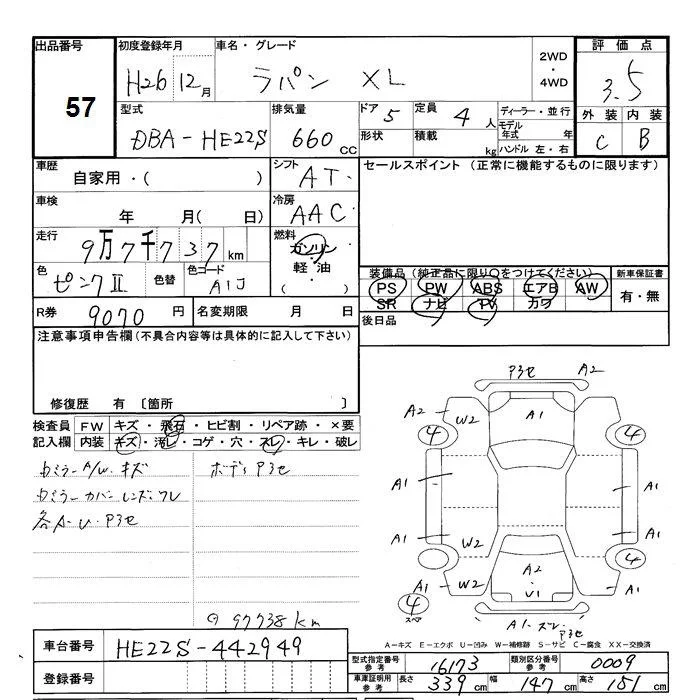 出品番号
57
初度登録年月
H26 12月
車名・グレード
ラパン XL
2WD
・
4WD
評価点
3.5
外装 内装
C B
型式
DBA-HE22S
排気量
660cc
ドア 5
形状
定員 4人
積載 kg
ディーラー・並行
モデル年式 年
ハンドル 左・右
車歴
自家用・( )
シフト
AT
セールスポイント (正常に機能するものに限ります)
車検
年 月( 日)
冷房
AAC
走行
9万7千737km
燃料
ガソリン
・
軽油
( )
色
ピンクⅡ
色替
色コード
A1J
装備品(純正品に限り○をつけてください)
PS PW ABS エアB AW
SR ナビ TV カワ
新車保証書
有・無
R券
9070円
名変期限 月 日
後日品
注意事項申告欄(不具合内容等は具体的に記入して下さい)
修復歴 有 〔箇所 〕
検査員記入欄
FW キズ・飛石・ヒビ割・リペア跡・×要
内装 キズ・汚レ・コゲ・穴・スレ・キレ・破レ
A/W キズ
カバー
ボディ
97738km
A2
A2 W2
A1
4 4
A1 A1
A1 W2 A1
4
A1 W2 A2 A1
V1
4
スペア
A1・スレ
A-キズ E-エクボ U-凹み W-補修跡 S-サビ C-腐食 XX-交換済
車台番号
HE22S-442949
登録番号
型式指定番号 参考
16173
類別区分番号 参考
0009
車庫証明用 参考
長さ 339cm 幅 147cm 高さ 151cm